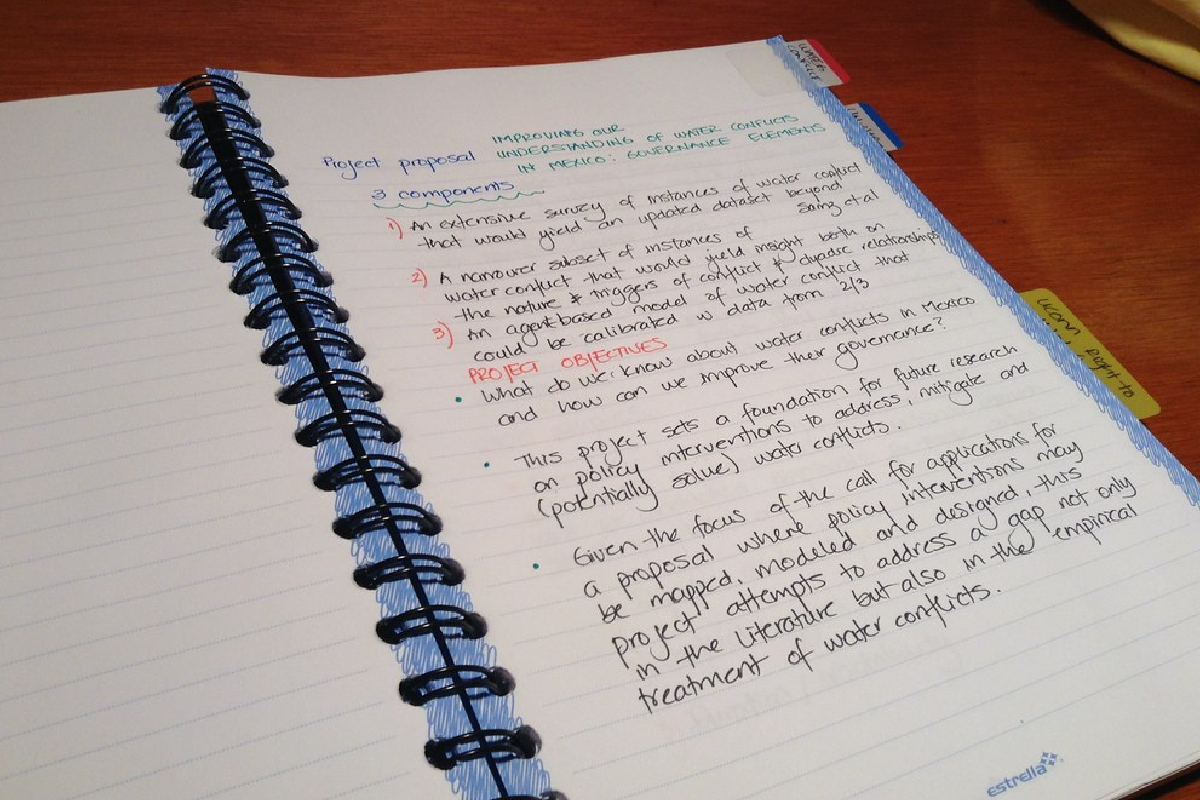 WATER
CONFLICT
IMPROVING OUR
Project proposal UNDERSTANDING OF WATER CONFLICTS
IN MEXICO: GOVERNANCE ELEMENTS
3 components
1) An extensive survey of instances of water conflict
that would yield an updated dataset beyond
Sainz et al
2) A narrower subset of instances of
water conflict that would yield insight both on
the nature & triggers of conflict & dyadic relationships
3) An agent-based model of water conflict that
could be calibrated w data from 2/3
PROJECT OBJECTIVES
• What do we know about water conflicts in Mexico
and how can we improve their governance?
• This project sets a foundation for future research
on policy interventions to address, mitigate and
(potentially solve) water conflicts.
• Given the focus of the call for applications for
a proposal where policy interventions may
be mapped, modeled and designed, this
project attempts to address a gap not only
in the literature but also in the empirical
treatment of water conflicts.
UCONN Right to
estrella